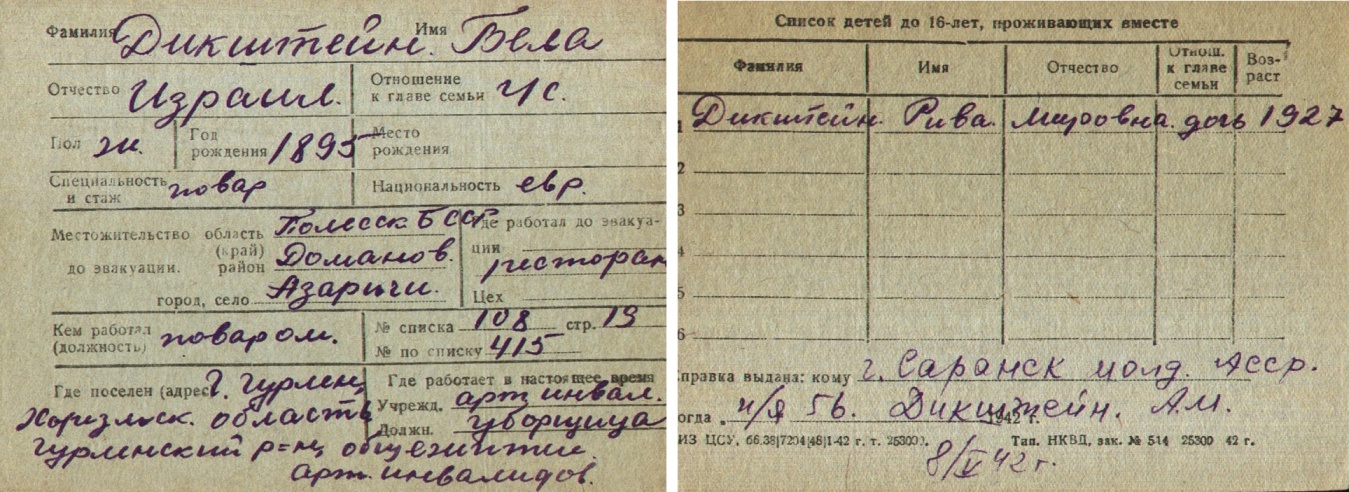 Фамилия Дикштейн. Имя Бела
Отчество Израил. Отношение к главе семьи ч/с.
Пол ж. Год рождения 1895 Место рождения
Специальность и стаж повар Национальность евр.
Местожительство до эвакуации. область (край) Полесск БССР Где работал до эвакуа-
район Доманов. ции ресторан
город, село Азаричи. Цех
Кем работал (должность) поваром. № списка 108 стр. 19
№ по списку 415
Где поселен (адрес) г. Гурлен, Где работает в настоящее время
Хорезмск. область Учрежд. арт. инвал.
Гурленский р-н, общежитие Должн. уборщица
арт. инвалидов.
Список детей до 16-лет, проживающих вместе
Фамилия Имя Отчество Отнош. к главе семьи Воз-раст
1 Дикштейн. Рива. Мировна. дочь 1927
2
3
4
5
6
справка выдана: кому г. Саранск молд. Асср.
огда п/я 56. Дикштейн. А.М. 1942 г.
ИЗ ЦСУ, 66.38|7204|48|1-42 г. т. 25300. Тип. НКВД, зак. № 514 25300 42 г.
8/V 42 г.